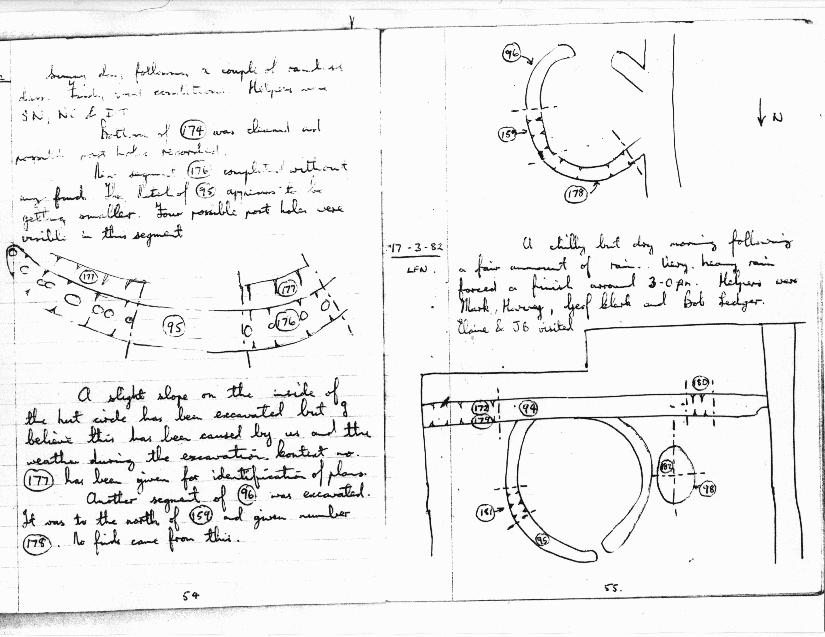 Sunny day, following a couple of rainless
days. Helpers were
SN, NC & DT
Bottom of (174) was cleaned and
possible post holes recorded.
New segment (176) completed without
any finds. The ditch of (95) appears to be
getting smaller. Four possible post holes were
visible in this segment
(177)
(177)
(95)
(176)
A slight slope on the inside of
the hut circle has been excavated but I
believe this has been caused by us and the
weather during the excavation. Context no.
(177) has been given for identification of plans.
Another segment of (96) was excavated.
It was to the north of (159) and given number
(178). No finds came from this.
54
(96)
(159)
(178)
N
17-3-82
LFN.
A chilly but dry morning following
a fair amount of rain. Very heavy rain
forced a finish around 3-0 pm. Helpers were
Mark, Harvey, Geof Clark and Bob Ledger.
Elaine & JG visited
(180)
(172)
(94)
(179)
(182)
(98)
(181)
(95)
55.